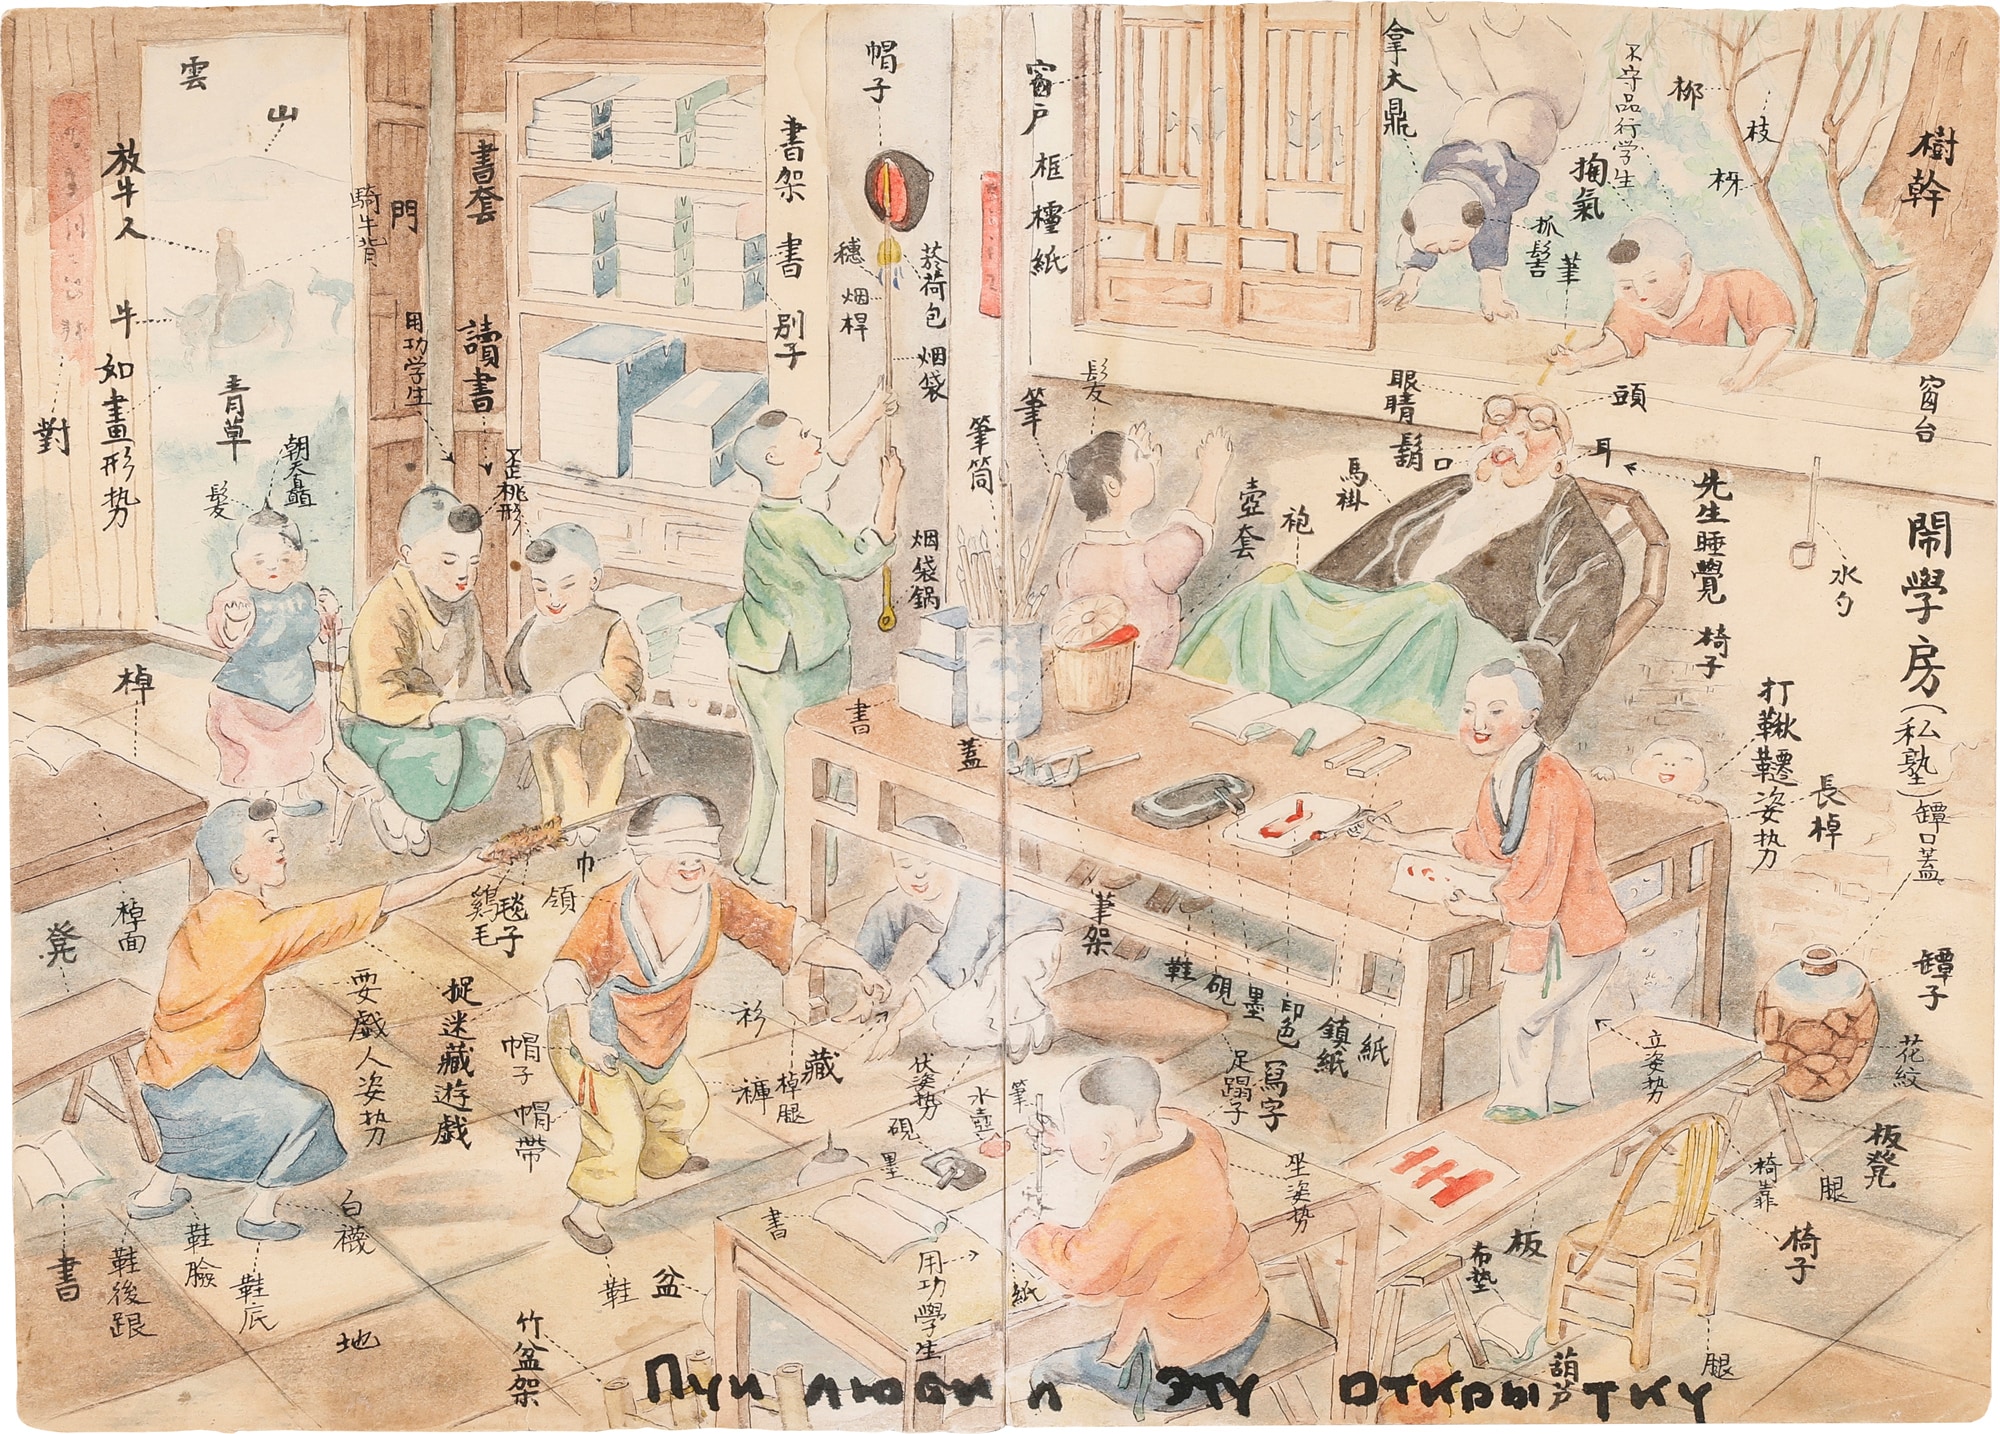 雲
山
放牛人
騎牛背
牛
如畫形势
青草
對
門
書套
讀書
用功学生
朝天直𩮀
髮
歪桃形
書架
書
别子
帽子
穗
菸荷包
烟桿
烟袋
烟袋锅
窗户
框
檯
紙
筆
筆筒
髮
拿大鼎
不守品行学生
掏氣
抓髻
筆
柳
枝
枒
樹幹
窗台
眼睛
頭
鬍
口
耳
馬褂
袍
壺套
先生睡覺
椅子
水勺
鬧學房(私塾)
打鞦韆姿势
長棹
罈口蓋
罈子
花紋
棹
棹面
凳
書
蓋
巾
領
鷄毛
毯子
耍戲人姿势
捉迷藏遊戯
帽子
帽带
衫
褲
棹腿
藏
伏姿势
筆架
鞋
硯
墨
印色
鎮紙
紙
足蹋子
寫字
立姿势
水壺
筆
硯
墨
書
用功學生
紙
坐姿势
板凳
腿
椅靠
椅子
板
布墊
葫芦
腿
書
鞋後跟
鞋臉
鞋底
白襪
地
鞋
盆
竹盆架
Пуи люби л эту открытку